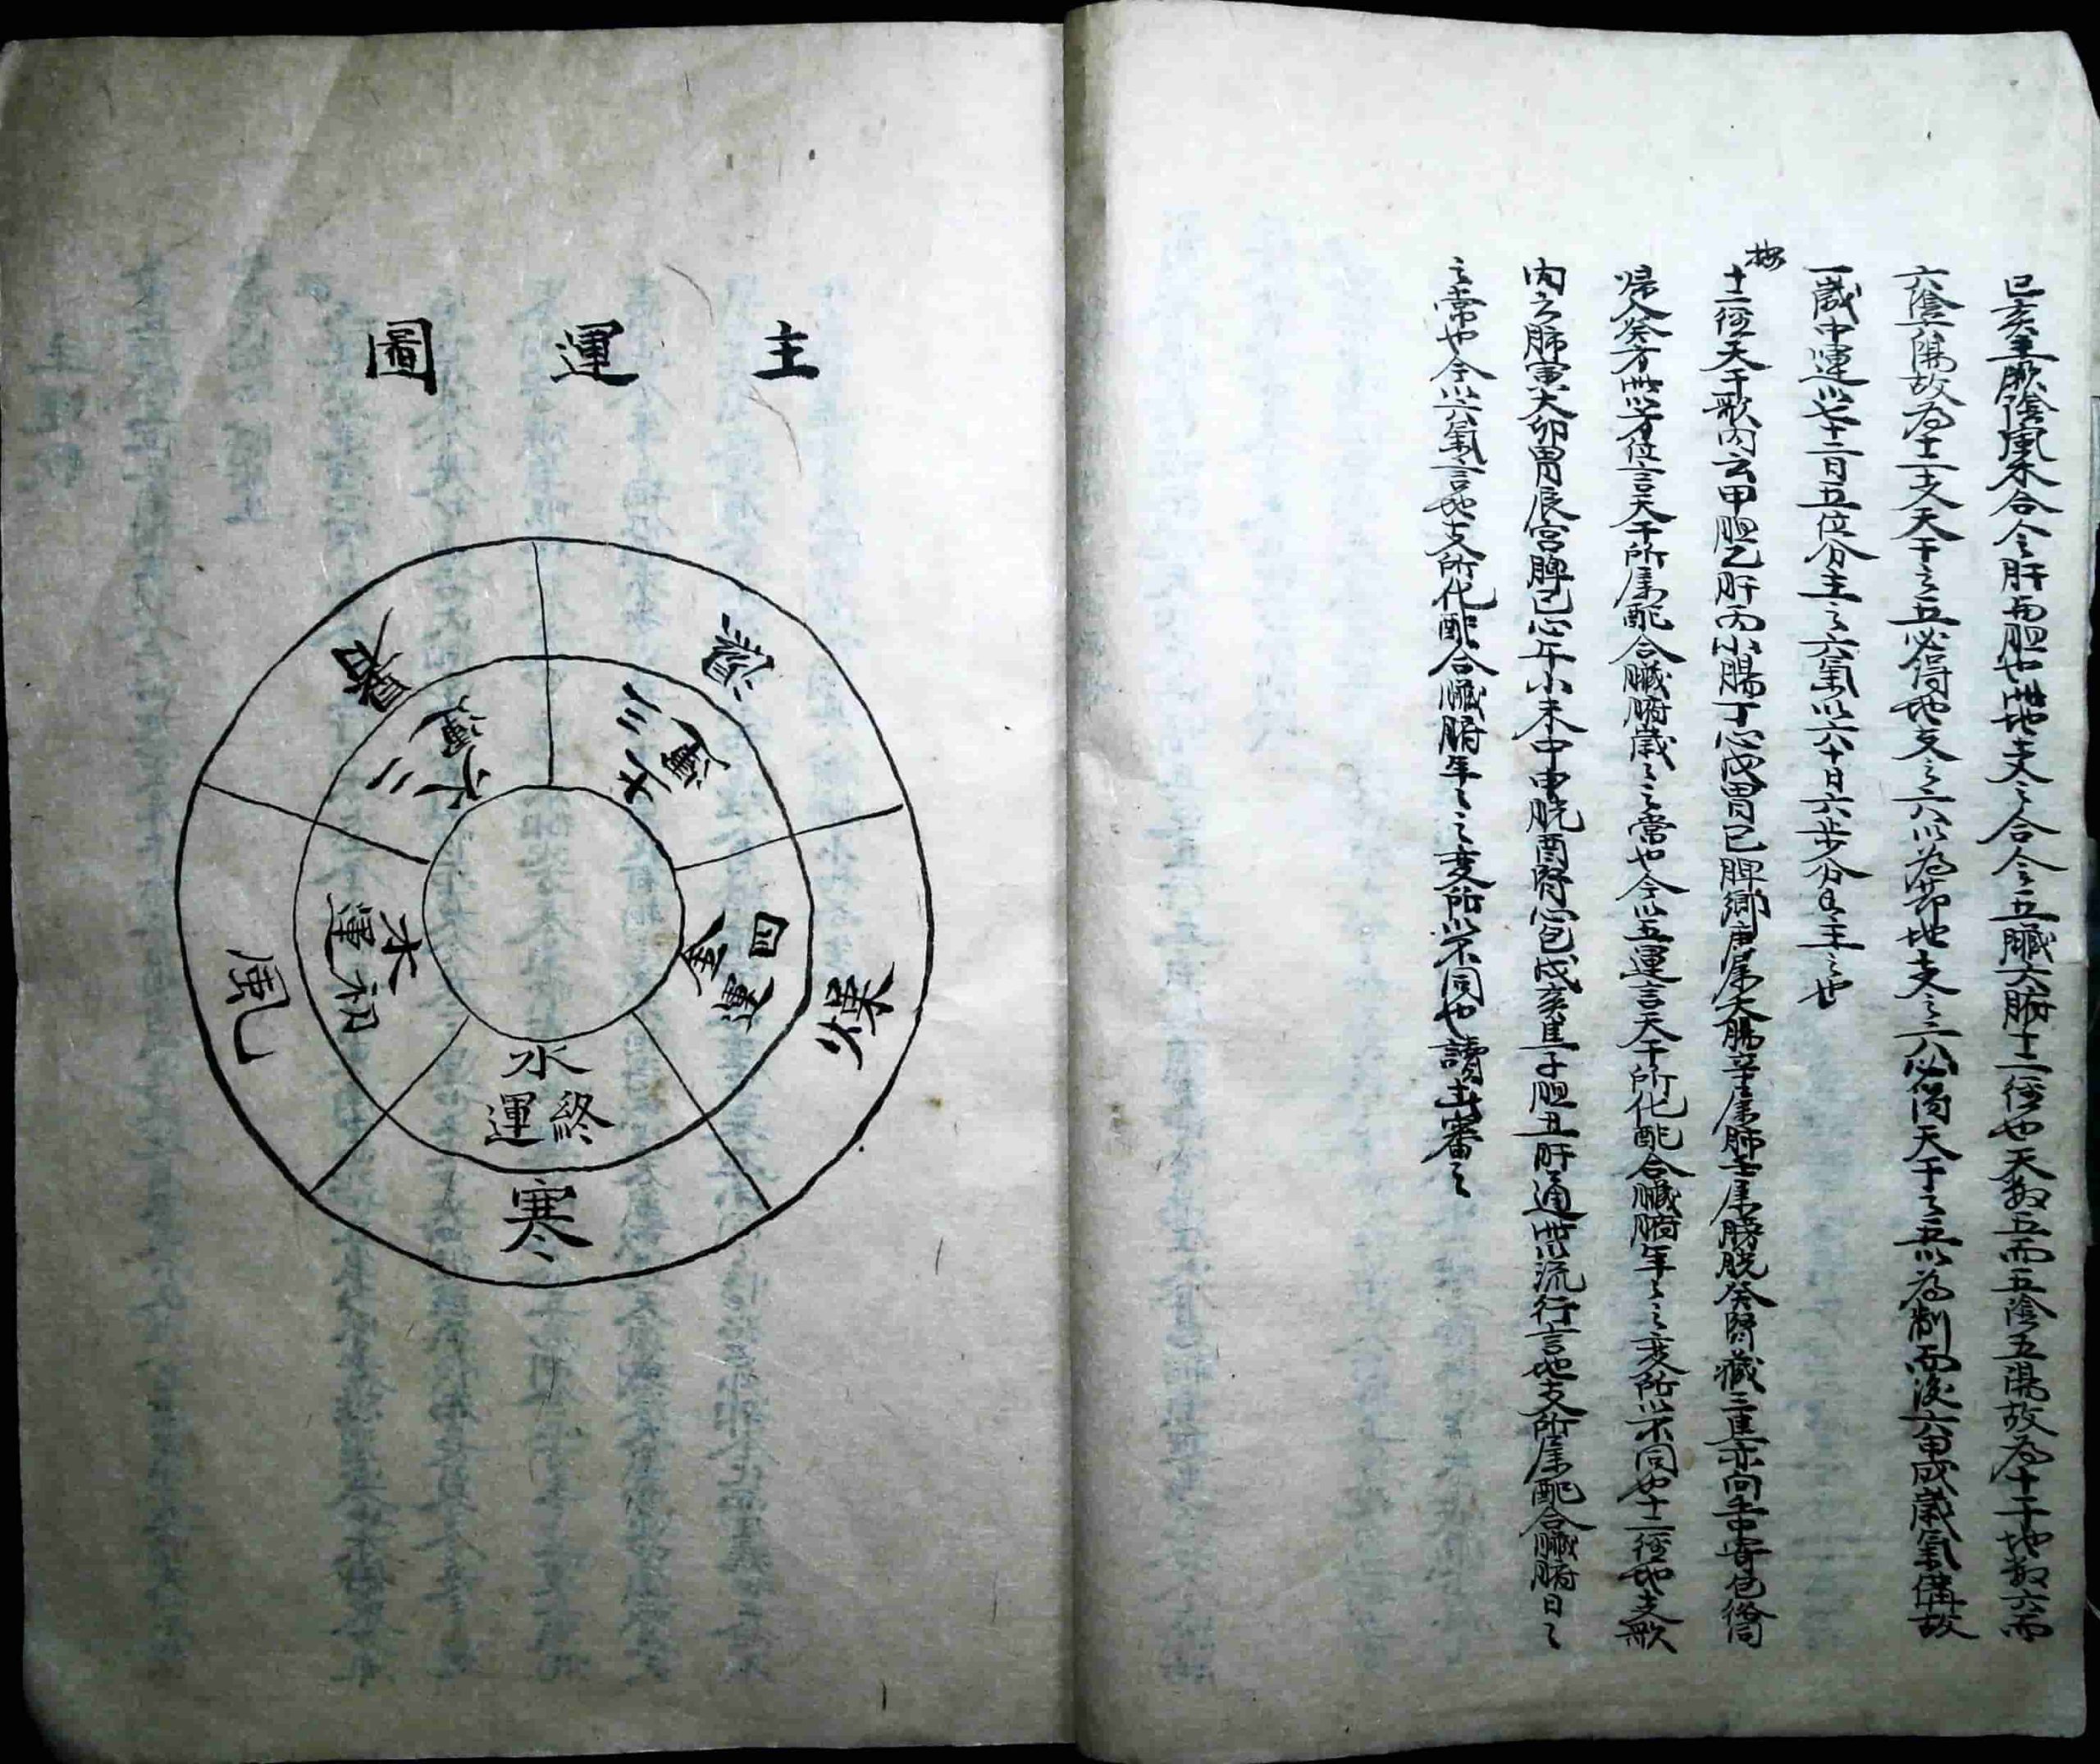 巳亥主厥陰風木合人之肝與胆也此地支之合人之五臟六腑十二經也天數五而五陰五陽故為十干地數六而
六陰六陽故為十二支天干之五必得地支之六以為節地支之六必得天干之五以為制而後六甲成歲氣備故
一歲中運以七十二日五位分主之六氣以六十日六步分主之也
按
十二經天干歌内云甲胆乙肝丙小腸丁心戊胃己脾鄉庚屬大腸辛屬肺壬屬膀胱癸腎藏三焦亦向壬中寄包絡同
歸入癸方此以方位言天干所屬配合臟腑歲之常也今以五運言天干所化配合臟腑年之變所以不同也十二經地支歌
内云肺寅大卯胃辰宮脾巳心午小未中申胱酉腎心包戌亥焦子胆丑肝通此以流行言地支所屬配合臟腑日之
之常也今以六氣言地支所化配合臟腑年之變所以不同也讀者審之
主運圖
濕
暑
土三運
火二運
金四運
燥
木初運
風
水終運
寒